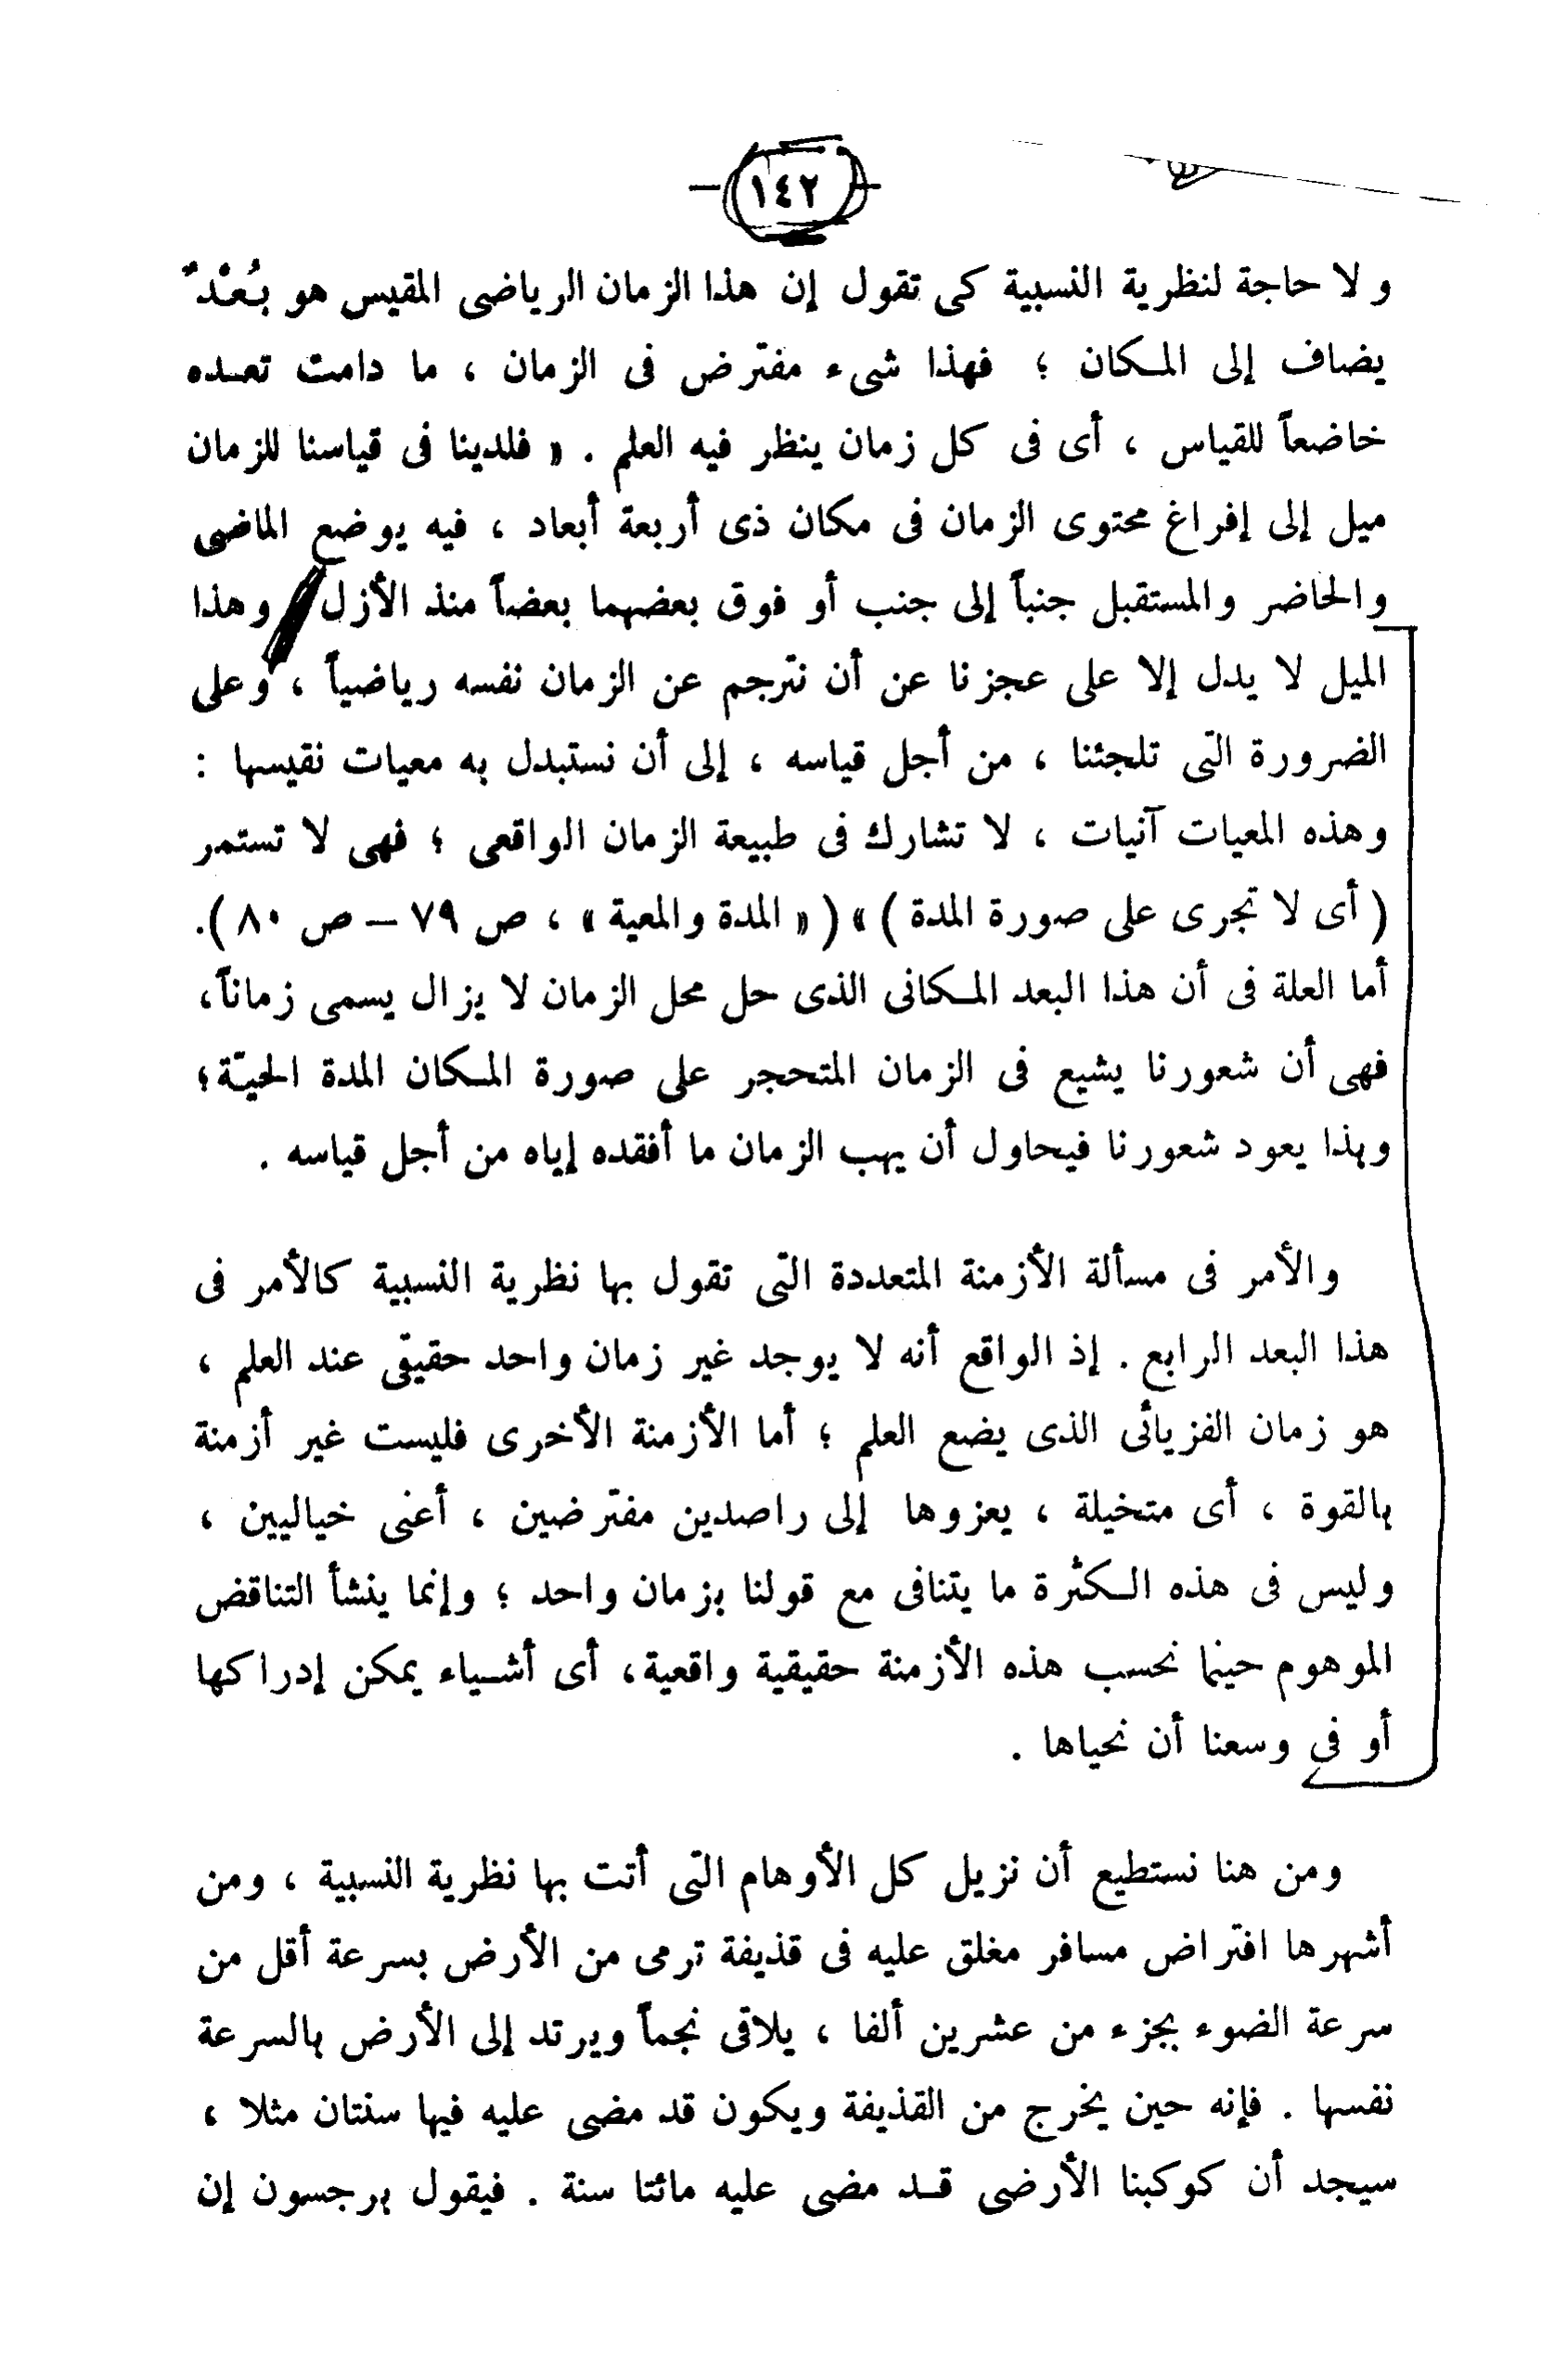 — ١٤٢ —
ولا حاجة لنظرية النسبية كى تقول إن هذا الزمان الرياضى المقيس هو بُعْدٌ
يضاف إلى المكان ؛ فهذا شىء مفترض فى الزمان ، ما دامت تعده
خاضعاً للقياس ، أى فى كل زمان ينظر فيه العلم . « فلدينا فى قياسنا للزمان
ميل إلى إفراغ محتوى الزمان فى مكان ذى أربعة أبعاد ، فيه يوضع الماضى
والحاضر والمستقبل جنباً إلى جنب أو فوق بعضهما بعضاً منذ الأزل وهذا
الميل لا يدل إلا على عجزنا عن أن نترجم عن الزمان نفسه رياضياً ، وعلى
الضرورة التى تلجئنا ، من أجل قياسه ، إلى أن نستبدل به معيات نقيسها :
وهذه المعيات آنيات ، لا تشارك فى طبيعة الزمان الواقعى ؛ فهى لا تستمر
( أى لا تجرى على صورة المدة ) » ( « المدة والمعية » ، ص ٧٩ – ص ٨٠ ).
أما العلة فى أن هذا البعد المكانى الذى حل محل الزمان لا يزال يسمى زماناً،
فهى أن شعورنا يشيع فى الزمان المتحجر على صورة المكان المدة الحيّة؛
وبهذا يعود شعورنا فيحاول أن يهب الزمان ما أفقده إياه من أجل قياسه .
والأمر فى مسألة الأزمنة المتعددة التى تقول بها نظرية النسبية كالأمر فى
هذا البعد الرابع . إذ الواقع أنه لا يوجد غير زمان واحد حقيقى عند العلم ،
هو زمان الفزيائى الذى يضع العلم ؛ أما الأزمنة الأخرى فليست غير أزمنة
بالقوة ، أى متخيلة ، يعزوها إلى راصدين مفترضين ، أعنى خياليين ،
وليس فى هذه الكثرة ما يتنافى مع قولنا بزمان واحد ؛ وإنما ينشأ التناقض
الموهوم حينما نحسب هذه الأزمنة حقيقية واقعية، أى أشياء يمكن إدراكها
أو فى وسعنا أن نحياها .
ومن هنا نستطيع أن نزيل كل الأوهام التى أتت بها نظرية النسبية ، ومن
أشهرها افتراض مسافر مغلق عليه فى قذيفة ترمى من الأرض بسرعة أقل من
سرعة الضوء بجزء من عشرين ألفا ، يلاقى نجماً ويرتد إلى الأرض بالسرعة
نفسها . فإنه حين يخرج من القذيفة ويكون قد مضى عليه فيها سنتان مثلا ،
سيجد أن كوكبنا الأرضى قد مضى عليه مائتا سنة . فيقول برجسون إن